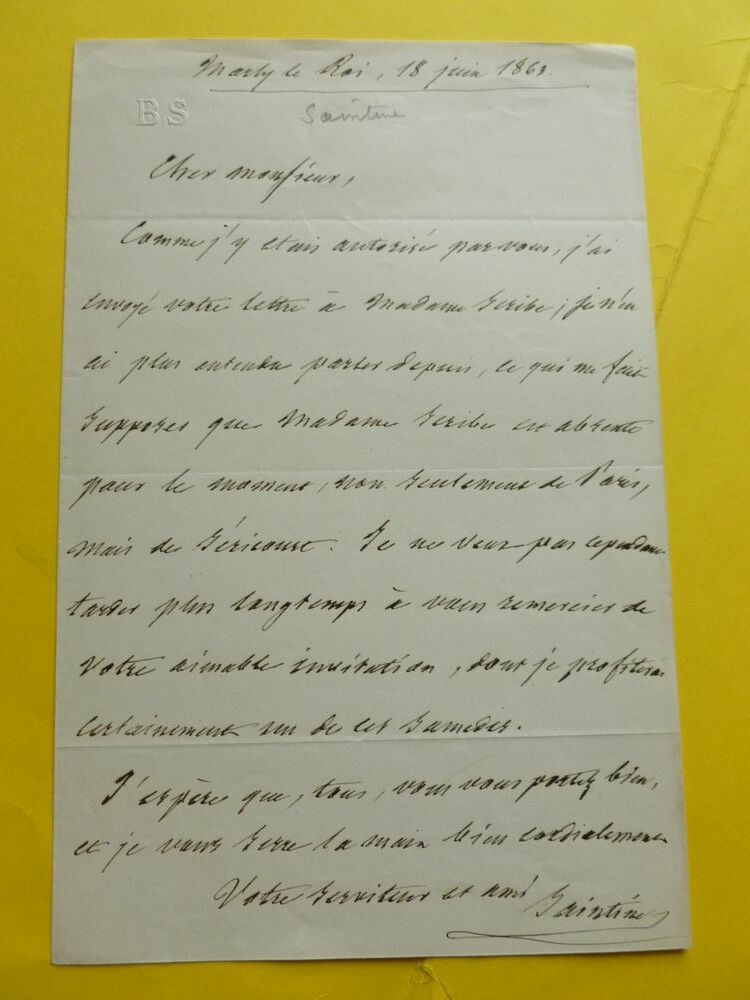 Marly le Roi, 18 juin 1863.
BS
Saintine
Cher monsieur,
Comme j'y étais autorisé par vous, j'ai
envoyé votre lettre à Madame Scribe ; je n'en
ai plus entendu parler depuis, ce qui me fait
supposer que Madame Scribe est absente
pour le moment, non seulement de Paris,
mais de Séricourt. Je ne veux pas cependant
tarder plus longtemps à vous remercier de
votre aimable invitation, dont je profiterai
certainement un de ces samedis.
J'espère que, tous, vous vous portez bien,
et je vous serre la main bien cordialement
Votre serviteur et ami
Saintine